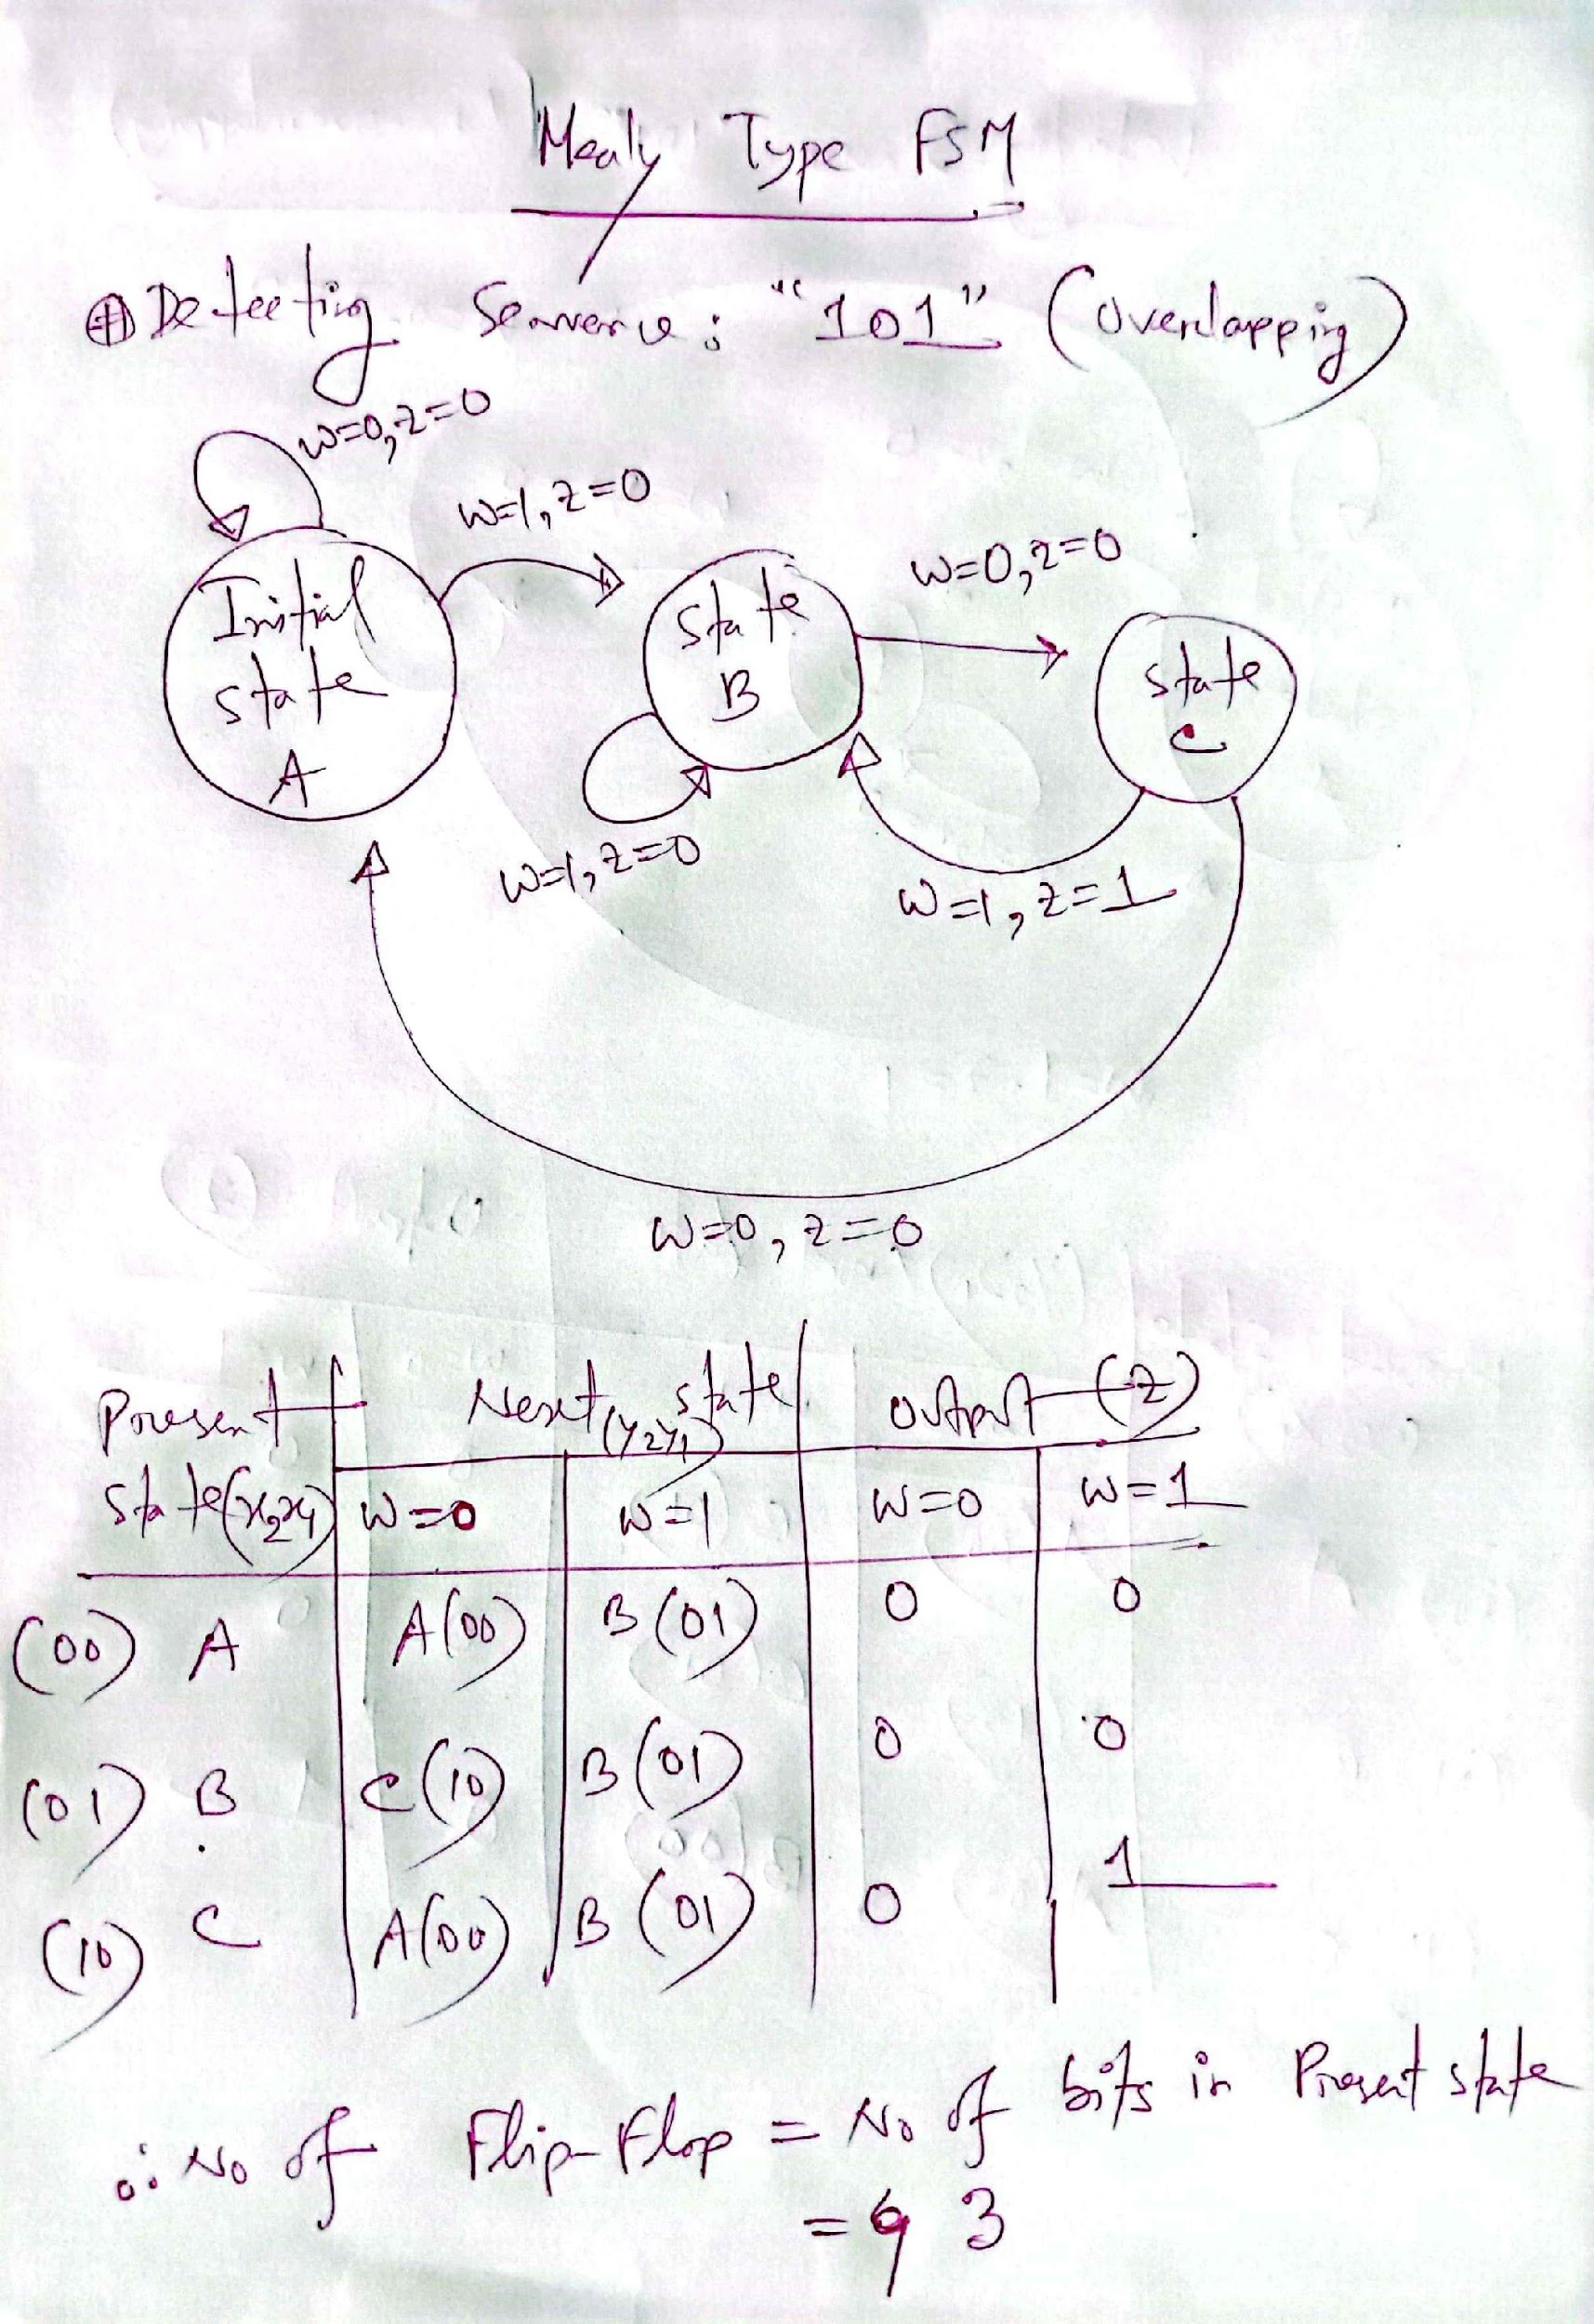 Mealy Type FSM
Detecting Sequence : "101" (Overlapping)
w=0, z=0
w=1, z=0
w=0, z=0
Initial state A
State B
state C
w=1, z=0
w=1, z=1
w=0, z=0
Present Next state Output (z)
(y2y1)
state(x2x1) w=0 w=1 w=0 w=1
(00) A A(00) B(01) 0 0
(01) B C(10) B(01) 0 0
(10) C A(00) B(01) 0 1
∴ No of Flip-Flop = No of bits in Present state
= 3